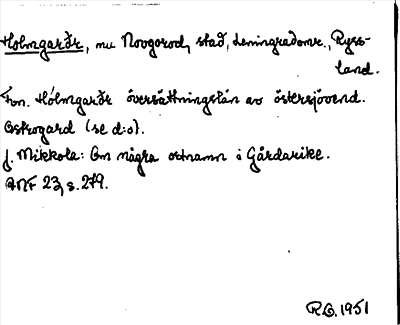 Holmgarðr, nu Novgorod, stad, Leningradomr., Ryss-
land.
Fvn. Hólmgarðr översättningslån av östersjövend.
Ostrogard (se d:o).
J. Mikkola: Om några ortnamn i Gårdarike.
ANF 23, s. 279.
R.O. 1951